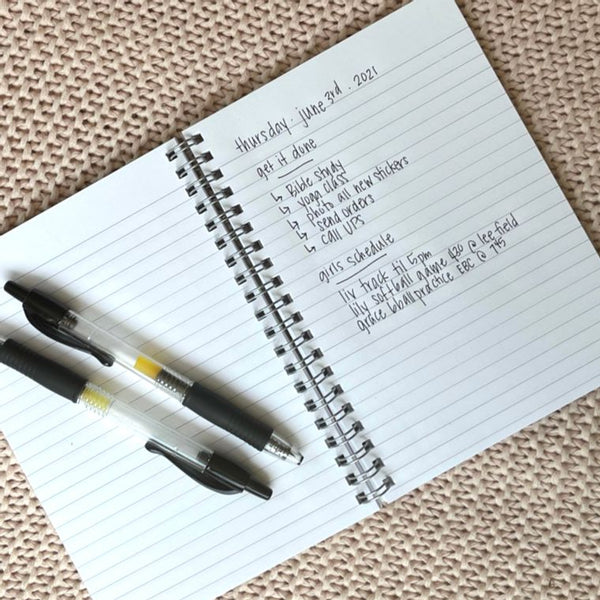 thursday . june 3rd . 2021
get it done
↳ Bible study
↳ yoga class
↳ photo all new stickers
↳ send orders
↳ call UPS
girls schedule
liv track til 5pm
lily softball game 430 @ lee field
grace bball practice EBC @ 745